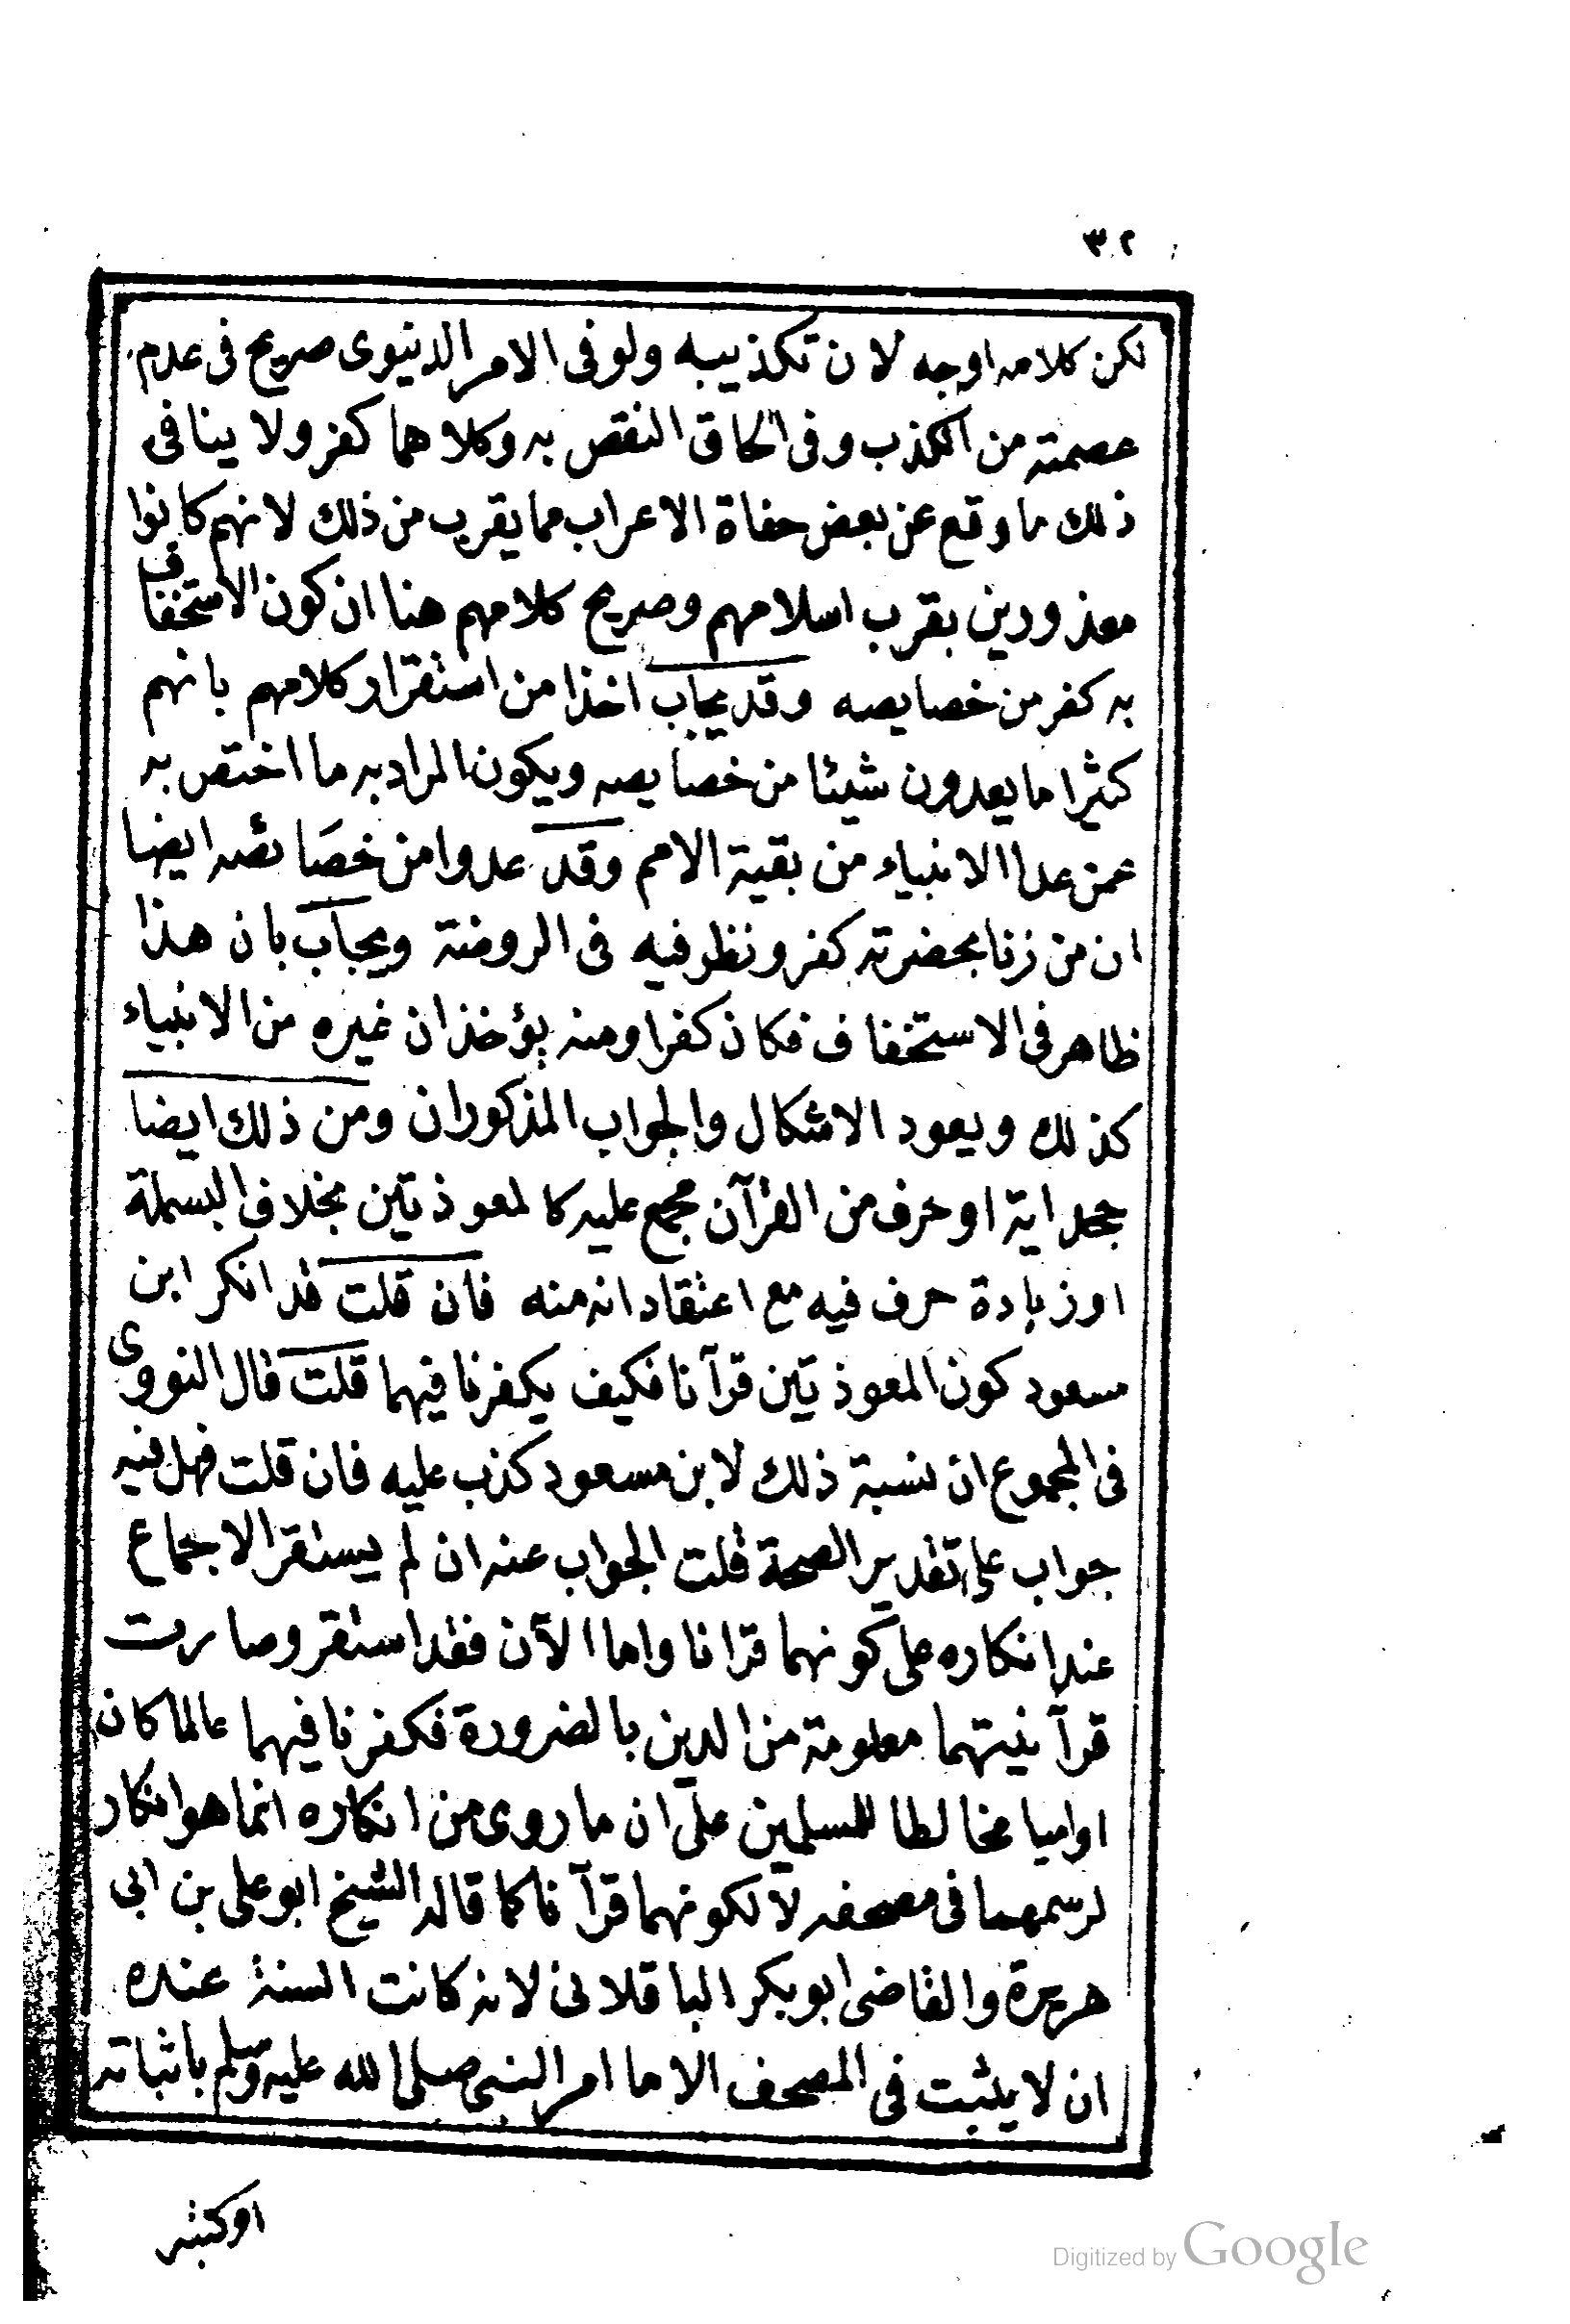 ٣٢
لكن كلامه اوجه لان تكذيبه ولو فى الامر الدنيوى صريح فى عدم
عصمته من الكذب وفى الحاق النقص به وكلاهما كفر ولا ينافى
ذلك ما وقع عن بعض جفاة الاعراب مما يقرب من ذلك لانهم كانوا
معذورين بقرب اسلامهم وصريح كلامهم هنا ان كون الاستخفاف
به كفر من خصايصه وقد يجاب اخذا من استقرار كلامهم بانهم
كثيرا ما يعدون شيئا من خصايصه ويكون المراد به ما اختص به
عمن عدا الانبياء من بقية الامم وقد عدوا من خصائصه ايضا
ان من زنا بحضرته كفر ونظر فيه فى الروضة ويجاب بان هذا
ظاهر فى الاستخفاف فكان كفرا ومنه يؤخذ ان غيره من الانبياء
كذلك ويعود الاشكال والجواب المذكوران ومن ذلك ايضا
جحد اية او حرف من القرآن مجمع عليه كالمعوذتين بخلاف البسملة
او زيادة حرف فيه مع اعتقاد انه منه فان قلت قد انكر ابن
مسعود كون المعوذتين قرآنا فكيف يكفر نافيهما قلت قال النووى
فى المجموع ان نسبة ذلك لابن مسعود كذب عليه فان قلت فهل فيه
جواب على تقدير الصحة قلت الجواب عنه ان لم يستقر الاجماع
عند انكاره على كونهما قرانا واما الآن فقد استقر وصارت
قرآنيتهما معلومة من الدين بالضرورة فكفر نافيهما عالما كان
او اميا مخالطا للمسلمين على ان ما روى من انكاره انما هو انكار
لرسمهما فى مصحفه لا لكونهما قرآنا كما قاله الشيخ ابو على بن ابى
هريرة والقاضى ابو بكر الباقلانى لانه كانت السنة عنده
ان لا يثبت فى المصحف الا ما امر النبى صلى الله عليه وسلم باثباته
او كتبه
Digitized by Google